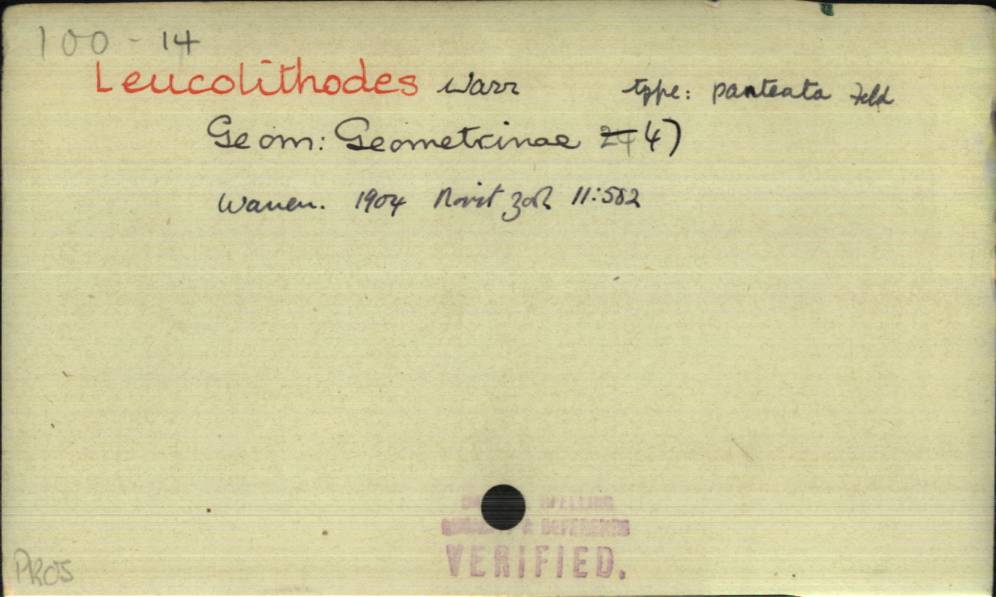 100 - 14
Leucolithodes Warr type: panteata Feld
Geom: Geometrinae 24 47
Warren. 1904 Novit zool 11:582
SPELLING
& REFERENCE
VERIFIED.
PROS